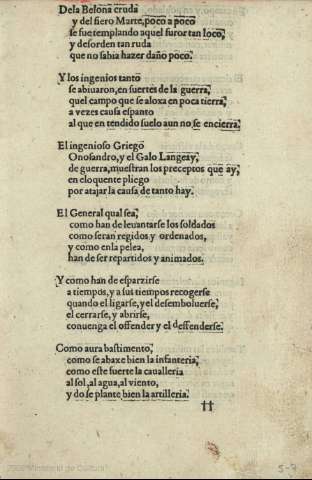 Dela Belona cruda
y del fiero Marte, poco a poco
se fue templando aquel furor tan loco,
y desorden tan ruda
que no sabia hazer daño poco.
Y los ingenios tanto
se abiuaron, en suertes de la guerra,
quel campo que se aloxa en poca tierra,
a vezes causa espanto
al que en tendido suelo aun no se encierra.
El ingenioso Griego
Onosandro, y el Galo Langeay,
de guerra, muestran los preceptos que ay,
en eloquente pliego
por atajar la causa de tanto hay.
El General qual sea,
como han de leuantarse los soldados
como seran regidos y ordenados,
y como enla pelea,
han de ser repartidos y animados.
Y como han de esparzirse
a tiempos, y a sus tiempos recogerse
quando el ligarse, y el desemboluerse,
el cerrarse, y abrirse,
conuenga el offender y el deffenderse.
Como aura bastimento,
como se abaxe bien la infanteria,
como este fuerte la caualleria
al sol, al agua, al viento,
y do se plante bien la artilleria.
††
Ministerio de Cultura
5-7